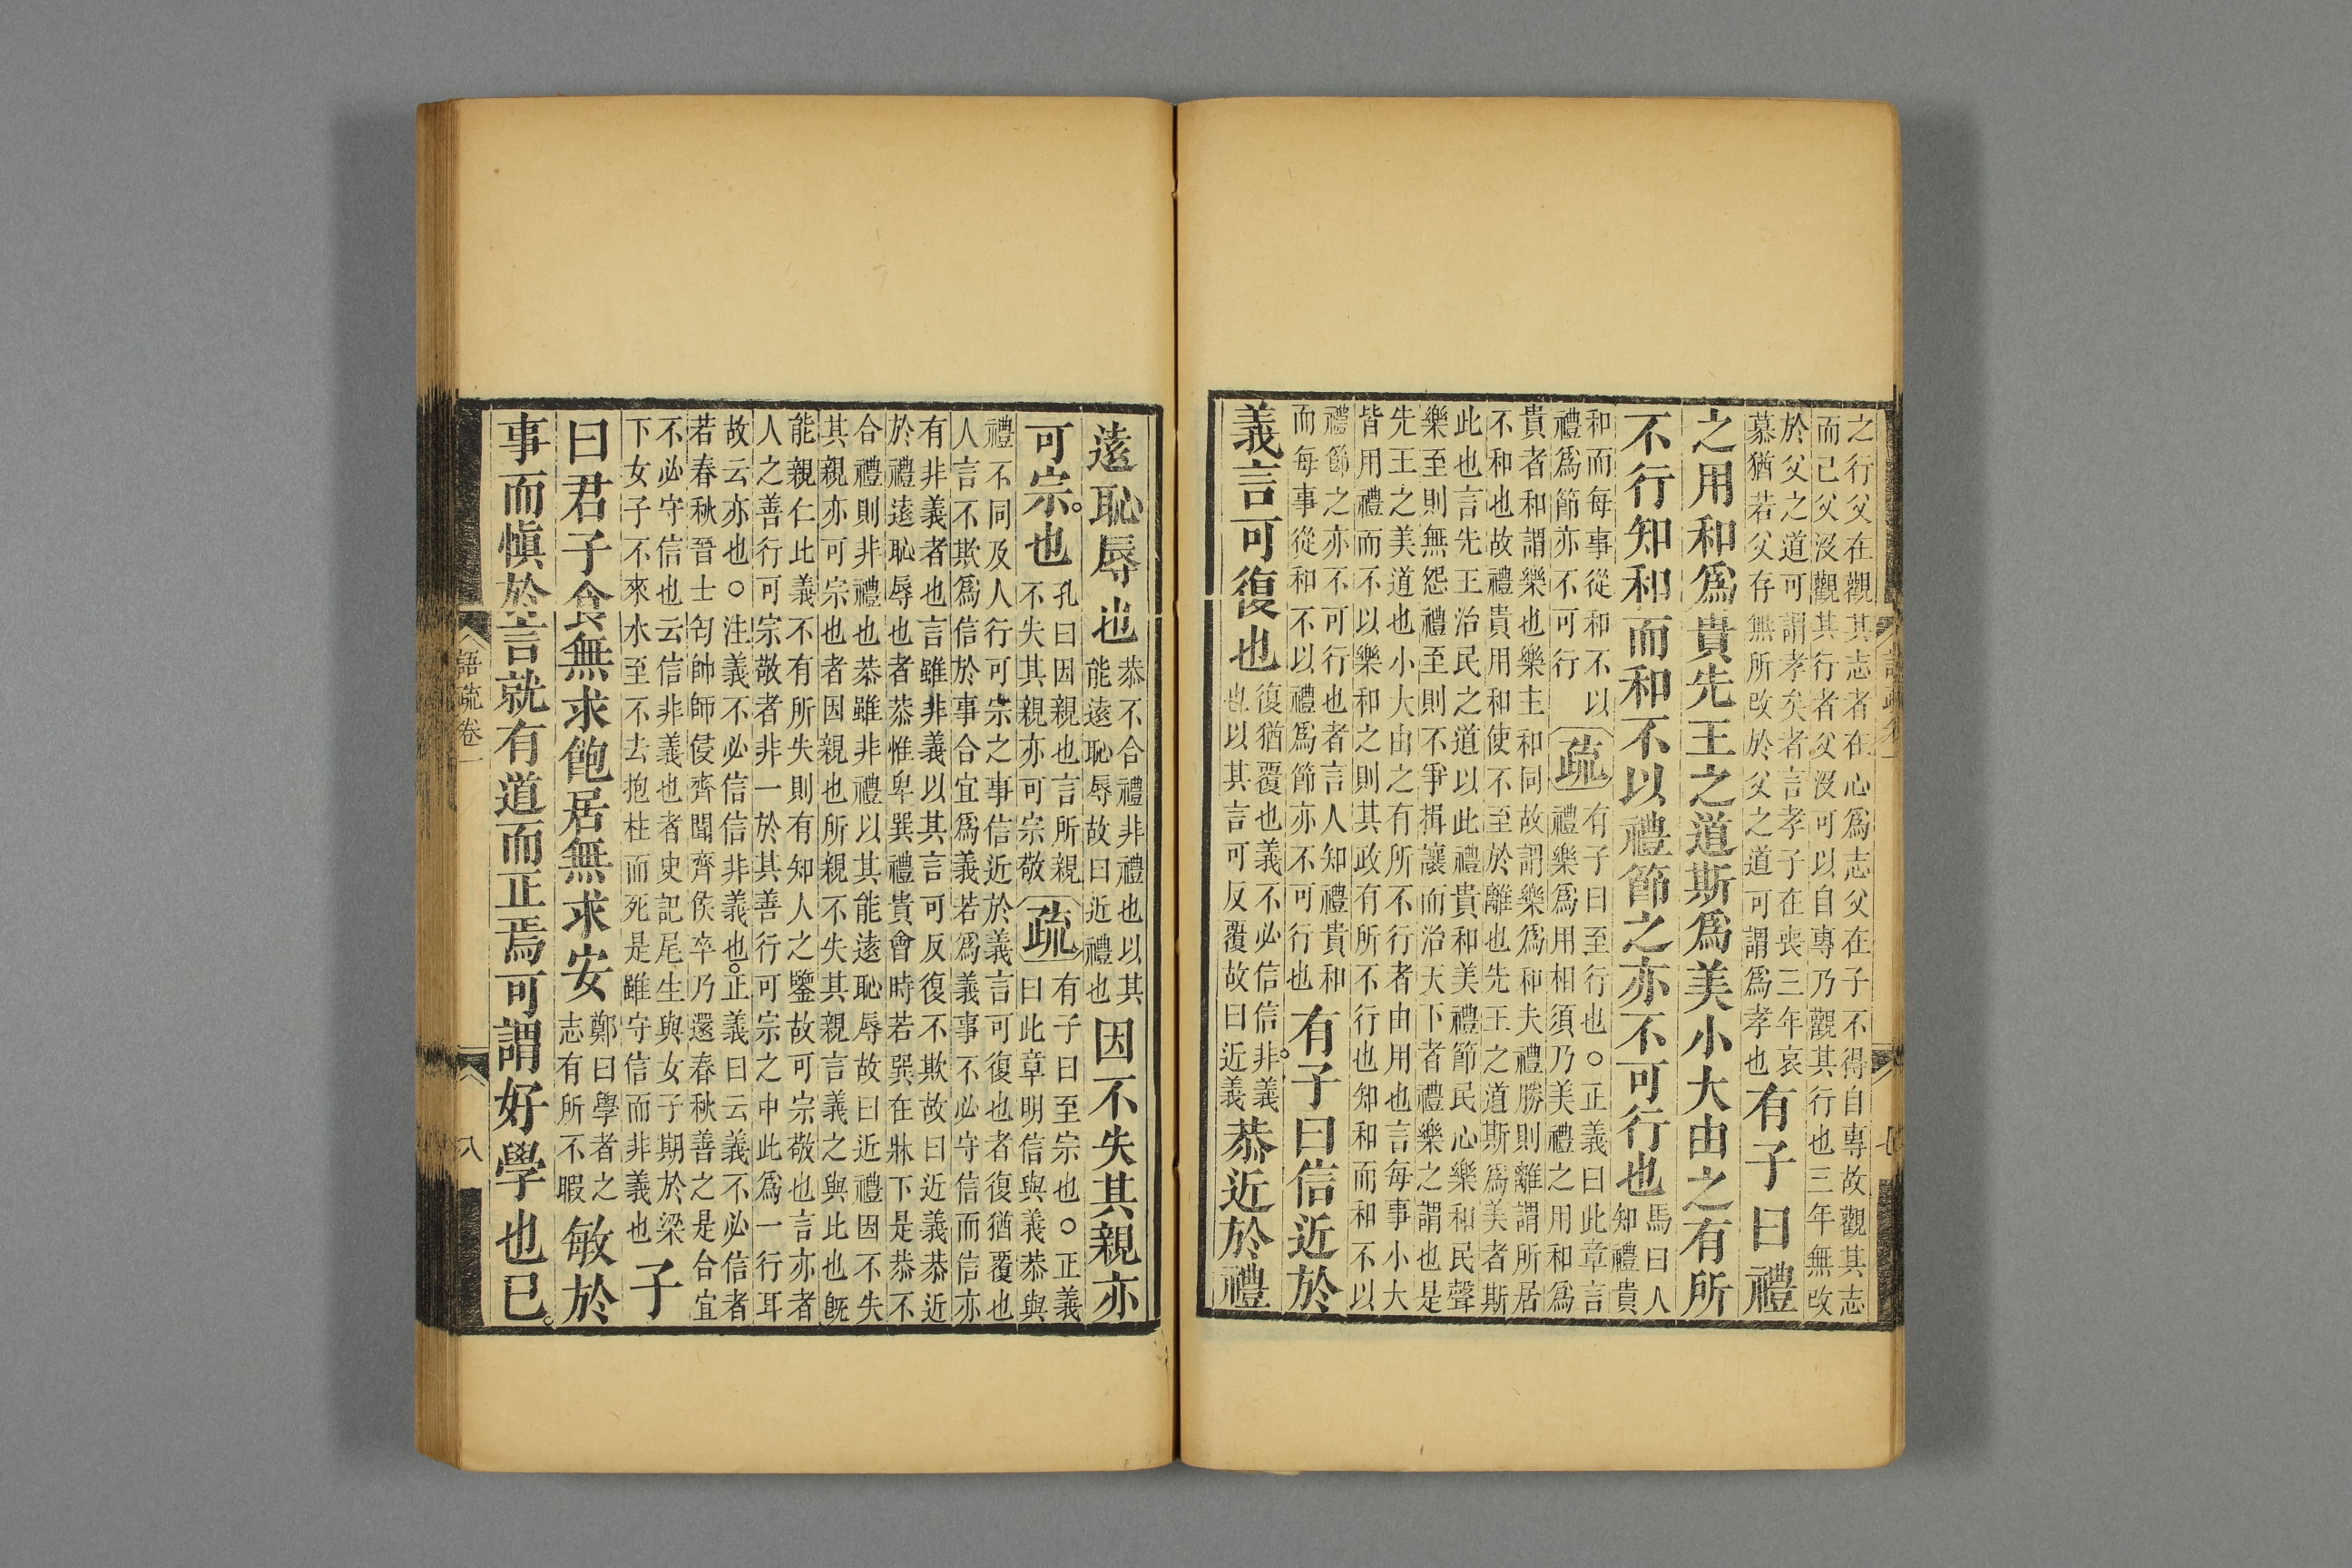 之行父在觀其志者在心爲志父在子不得自專故觀其志
而已父沒觀其行者父沒可以自專乃觀其行也三年無改
於父之道可謂孝矣者言孝子在喪三年哀
慕猶若父存無所改於父之道可謂爲孝也
有子曰禮
之用和爲貴先王之道斯爲美小大由之有所
不行知和而和不以禮節之亦不可行也
馬曰人
知禮貴
和而每事從和不以
禮爲節亦不可行
疏
有子曰至行也○正義曰此章言
禮樂爲用相須乃美禮之用和爲
貴者和謂樂也樂主和同故謂樂爲和夫禮勝則離謂所居
不和也故禮貴用和使不至於離也先王之道斯爲美者斯
此也言先王治民之道以此禮貴和美禮節民心樂和民聲
樂至則無怨禮至則不爭揖讓而治天下者禮樂之謂也是
先王之美道也小大由之有所不行者由用也言每事小大
皆用禮而不以樂和之則其政有所不行也知和而和不以
禮節之亦不可行也者言人知禮貴和
而每事從和不以禮爲節亦不可行也
有子曰信近於
義言可復也
復猶覆也義不必信信非義
也以其言可反覆故曰近義
恭近於禮
遠恥辱也
恭不合禮非禮也以其
能遠恥辱故曰近禮也
因不失其親亦
可宗也
孔曰因親也言所親
不失其親亦可宗敬
疏
有子曰至宗也○正義
曰此章明信與義恭與
禮不同及人行可宗之事信近於義言可復也者復猶覆也
人言不欺爲信於事合宜爲義若爲義事不必守信而信亦
有非義者也言雖非義以其言可反復不欺故曰近義恭近
於禮遠恥辱也者恭惟卑巽禮貴會時若巽在牀下是恭不
合禮則非禮也恭雖非禮以其能遠恥辱故曰近禮因不失
其親亦可宗也者因親也所親不失其親言義之與比也旣
能親仁比義不有所失則有知人之鑒故可宗敬也言亦者
人之善行可宗敬者非一於其善行可宗之中此爲一行耳
故云亦也○注義不必信信非義也正義曰云義不必信者
若春秋晉士匄帥師侵齊聞齊侯卒乃還春秋善之是合宜
不必守信也云信非義也者史記尾生與女子期於梁
下女子不來水至不去抱柱而死是雖守信而非義也
子
曰君子食無求飽居無求安
鄭曰學者之
志有所不暇
敏於
事而愼於言就有道而正焉可謂好學也已
語疏卷一
八